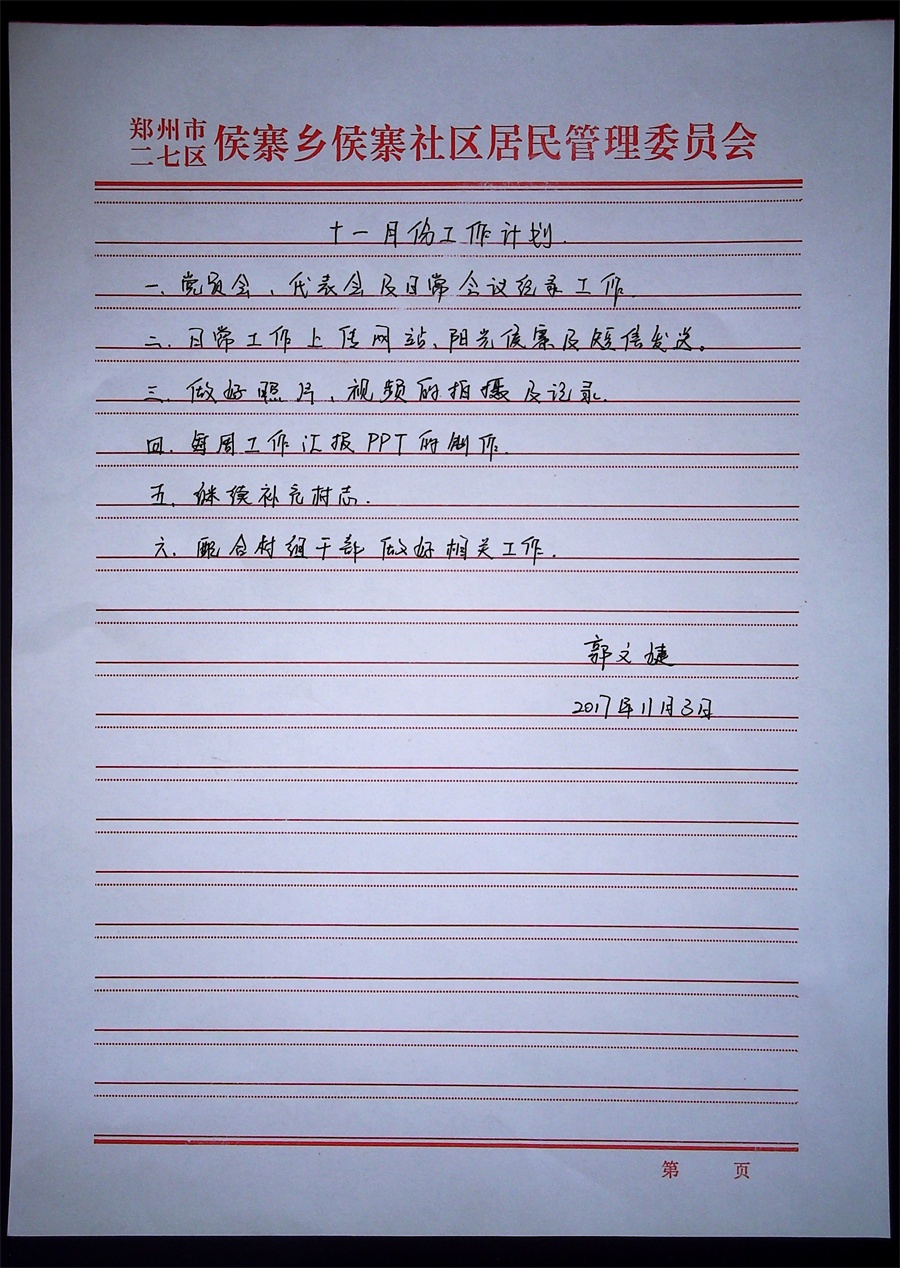 郑州市
二七区 侯寨乡侯寨社区居民管理委员会
十一月份工作计划.
一、党员会、代表会及日常会议纪录工作.
二、日常工作上传网站、阳光侯寨及短信发送。
三、做好照片、视频的拍摄及记录.
四、每周工作汇报PPT的制作.
五、继续补充村志.
六、配合村组干部做好相关工作.
郭文捷
2017年11月3日
第 页